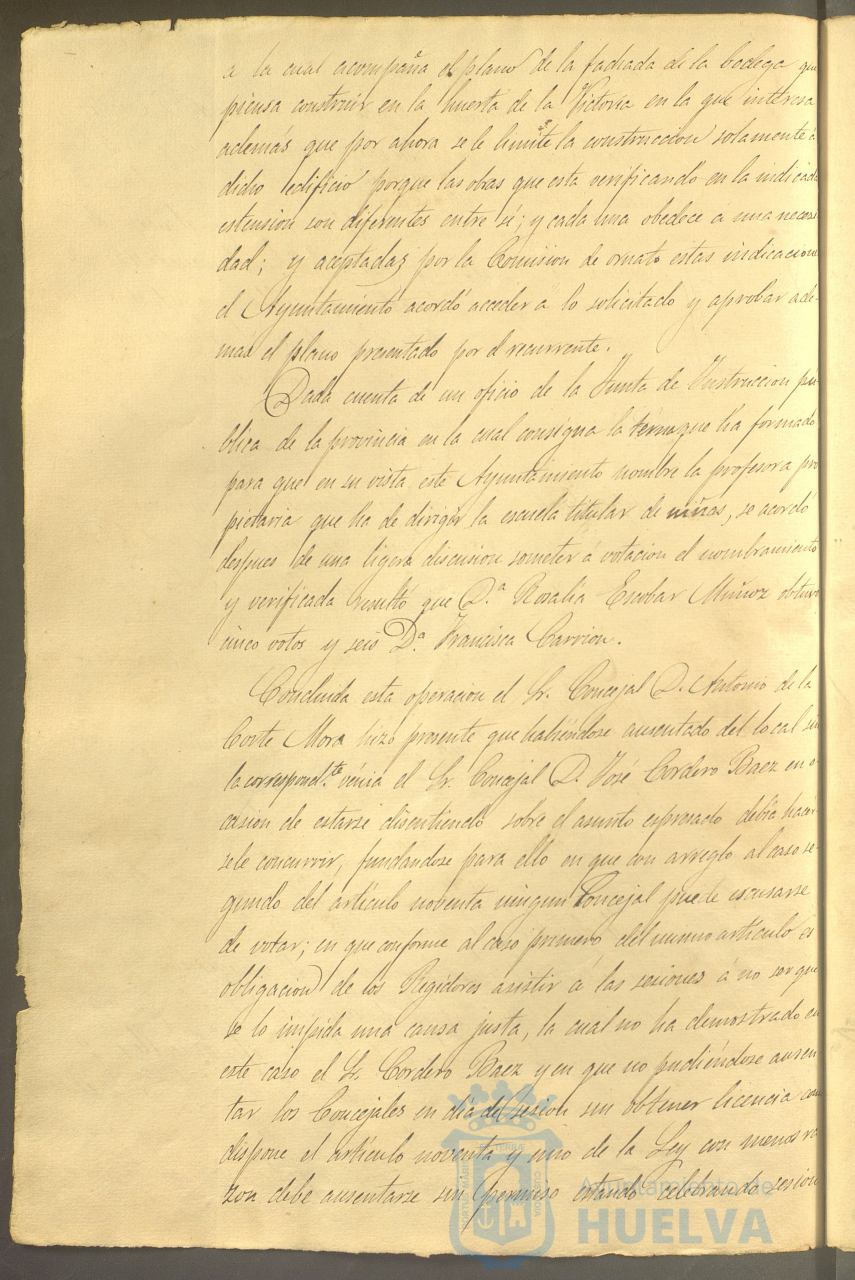 a la cual acompaña el plano de la fachada de la bodega que
piensa construir en la huerta de la Victoria en la que interesa
además que por ahora se le limite la construccion solamente á
dicho edificio porque las obras que esta verificando en la indicada
estension son diferentes entre sí; y cada una obedece á una necesi
dad; y aceptadas por la Comision de ornato estas indicaciones
el Ayuntamiento acordó acceder á lo solicitado y aprobar ade-
mas el plano presentado por el recurrente.
Dada cuenta de un oficio de la Junta de Instruccion pú-
blica de la provincia en la cual consigna la terna que ha formado
para que en su vista este Ayuntamiento nombre la profesora pro
pietaria que ha de dirigir la escuela titular de niñas, se acordó
despues de una ligera discusion someter á votacion el nombramiento
y verificada resultó que D.ª Rosalia Escobar Muñoz obtuvo
cinco votos y seis D.ª Francisca Carrion.
Concluida esta operacion el Sr. Concejal D. Antonio de la
Corte Mora hizo presente que habiéndose ausentado del local sin
la correspond.te vénia el Sr. Concejal D. José Cordero Baez en o-
casion de estarse discutiendo sobre el asunto espresado debia hacér
sele concurrir, fundandose para ello en que con arreglo al caso se-
gundo del artículo noventa ningun Concejal puede escusarse
de votar; en que conforme al caso primero del mismo artículo es
obligacion de los Regidores asistir á las sesiones á no ser que
se lo impida una causa justa, la cual no ha demostrado en
este caso el Sr. Cordero Baez y en que no pudiéndose ausen
tar los Concejales en dia de sesion sin obtener licencia como
dispone el artículo noventa y uno de la Ley con menos ra
zon debe ausentarse sin permiso estando celebrando sesion
Ayuntamiento de
HUELVA